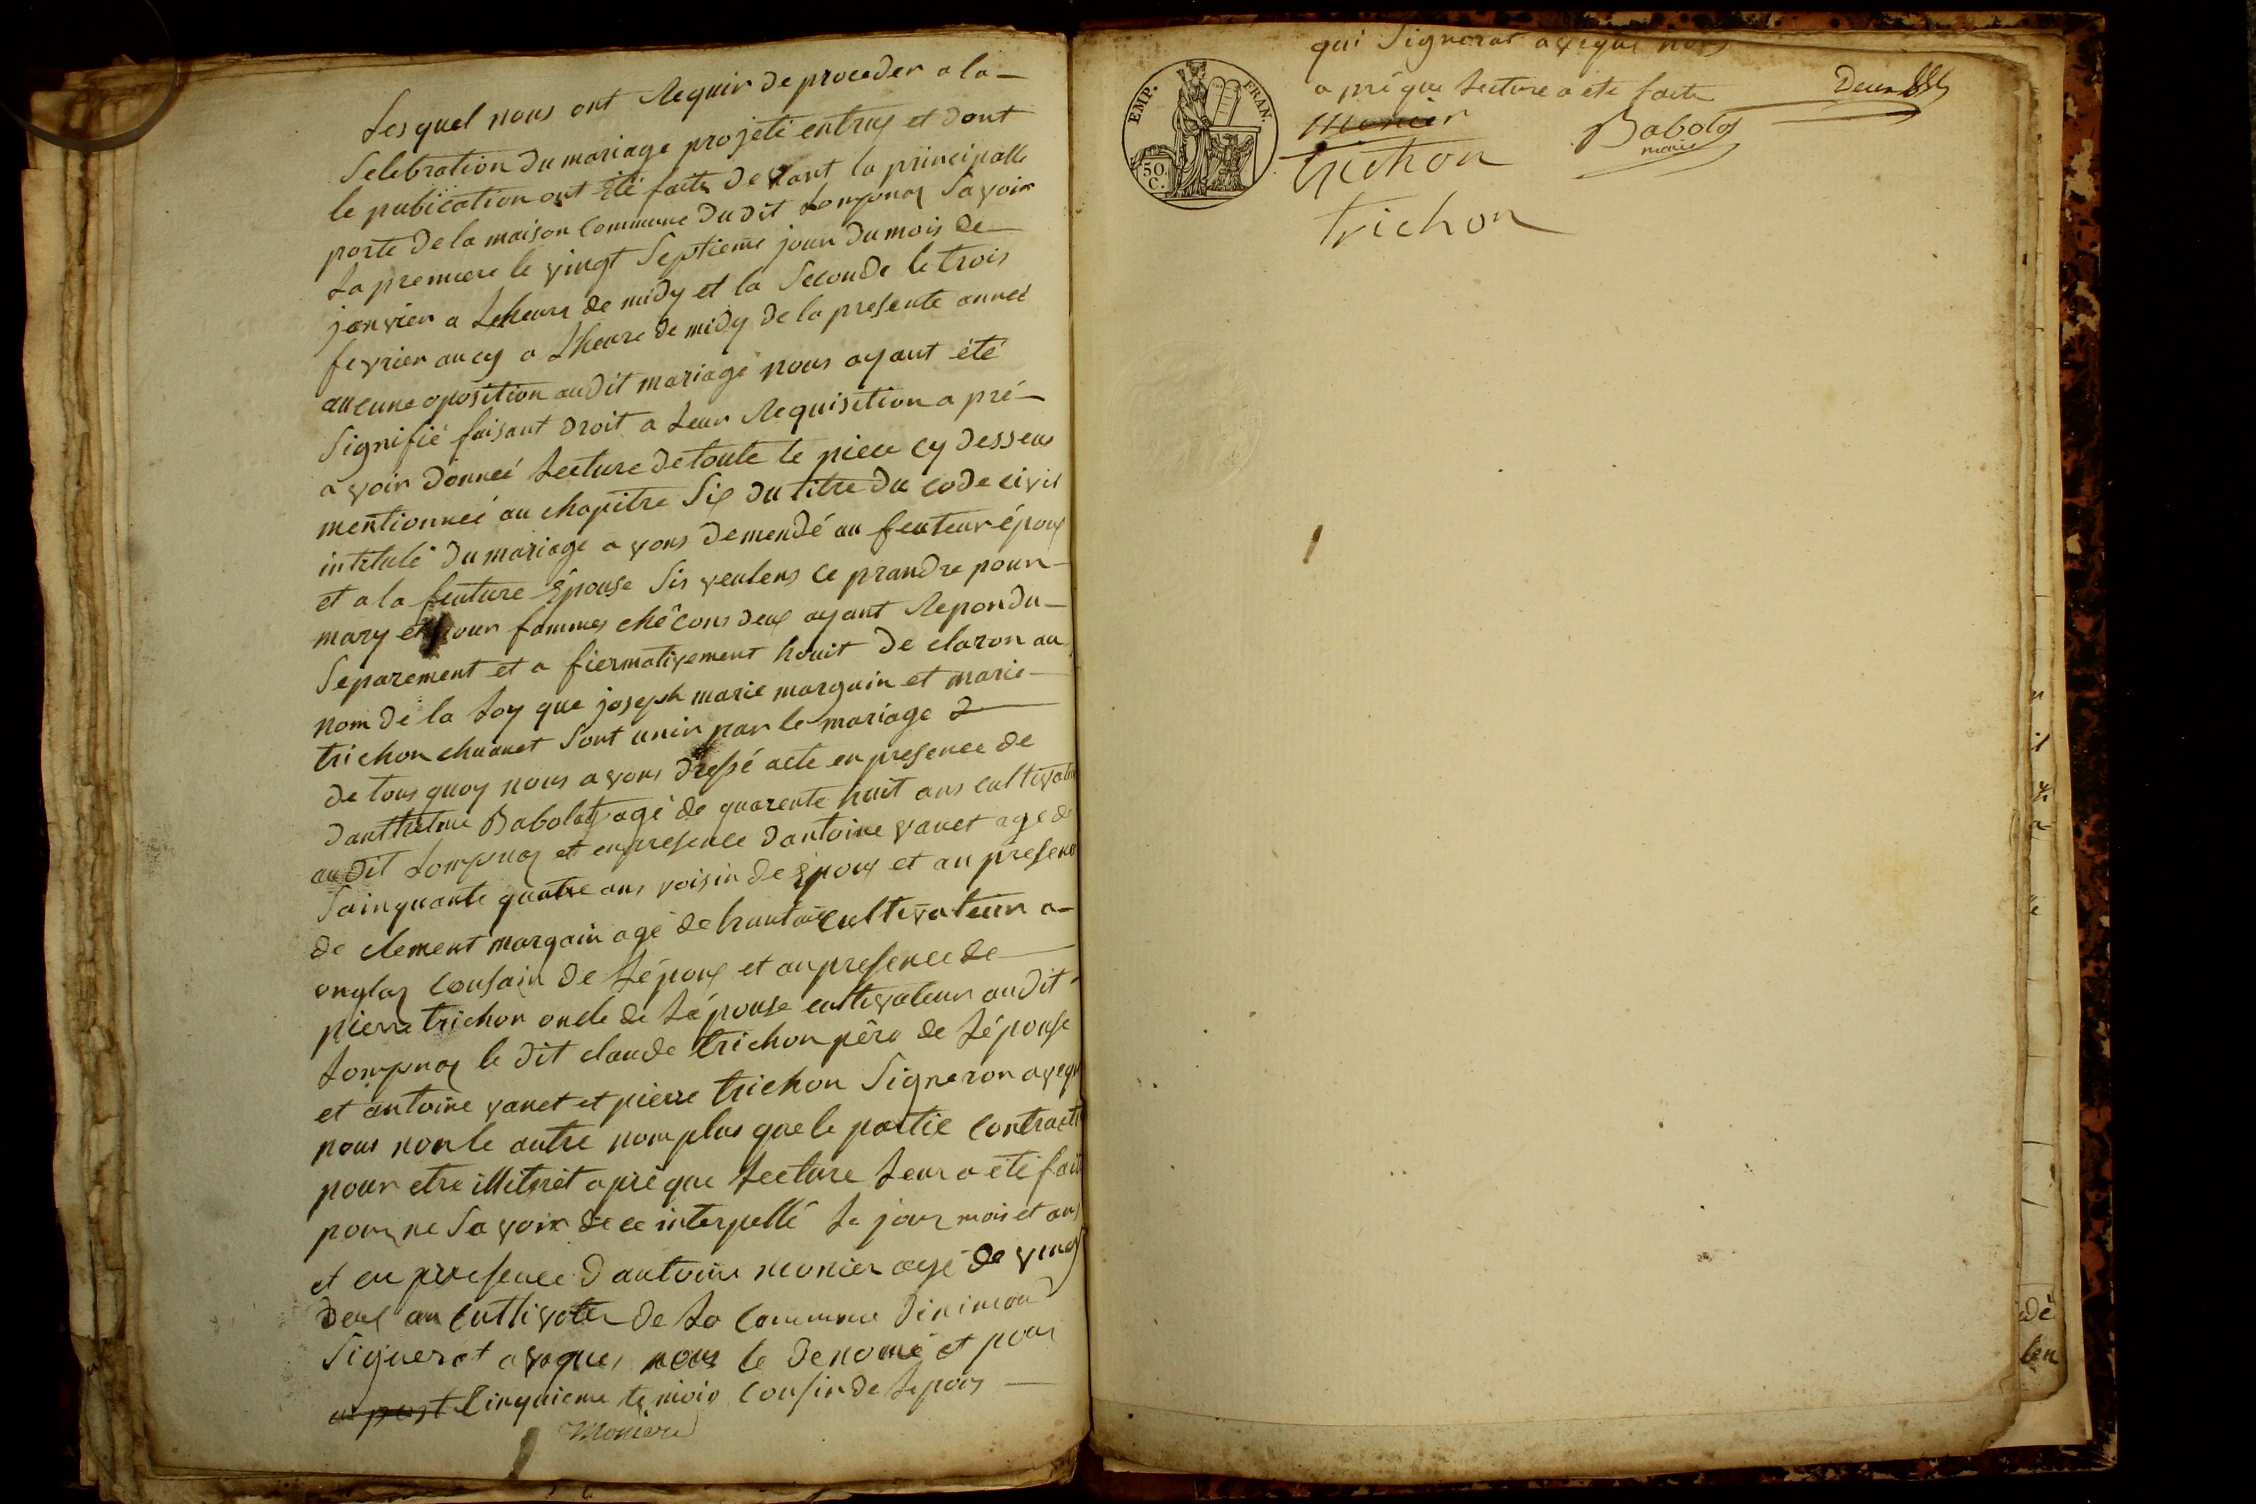 Lesquel nous ont Requir de proceder a la
Selebration du mariage projeté entrux et dont
le publication ont été faite devant la principalle
porte de la maison commune du dit Lompnaz Savoir
La premiere le vingt Septieme jour du mois de
janvier a Leheure de midy et la Seconde le trois
fevrier aucy a Lheure de midy de la presente anneé
aucune oposition audit mariage nous ayant été
Signifié faisant droit a Leur Requisition a pré
avoir donneé Lecture de toute le piece cy dessus
mentionneé au chapitre Six du titre du code civil
intitulé du mariage avons demendé au feuteur époux
et a la feuture Epouse Sis veulens ce prandre pour
mary et pour fammes chêcons deux ayant Repondu
Separement et a fiermativement houit de claron au
nom de la Loy que joseph marie marguin et marie
trichon chuanet Sont unir par le mariage
de tous quoy nous avons dressé acte en presence de
danthelme Babolat agé de quarente huit ans cultivateur
audit Lompnaz et en presence dantoine vanet age de
Sainquante quatre ans voisin de époux et an presence
de clement margain agé de trantois cultivateur a
onglaz cousain de Lépoux et an presence de
pierre trichon oncle de Lépouse cultivateur audit
Lompnaz le dit claude trichon pêre de Lépouse
et antoine vanet et pierre trichon Signeron aveque
nous non le autre nom plus que le partie contracte
pour etre illitrét apré que Lecture Leur a été faite
pour ne Savoir de ce interpellé Le jour mois et ans
et en presence dantoine monier agé de vingt
deux an cultivater de La commune dinimon
Signerat avaques nous le denomé et pour
Cinquieme temoin cousin de Lepoux
Moniere
qui Signerat aveque nous
a pré que Lecture a été faite
monier
Babolat
maire
trichon
trichon
EMP. FRAN.
50 C.